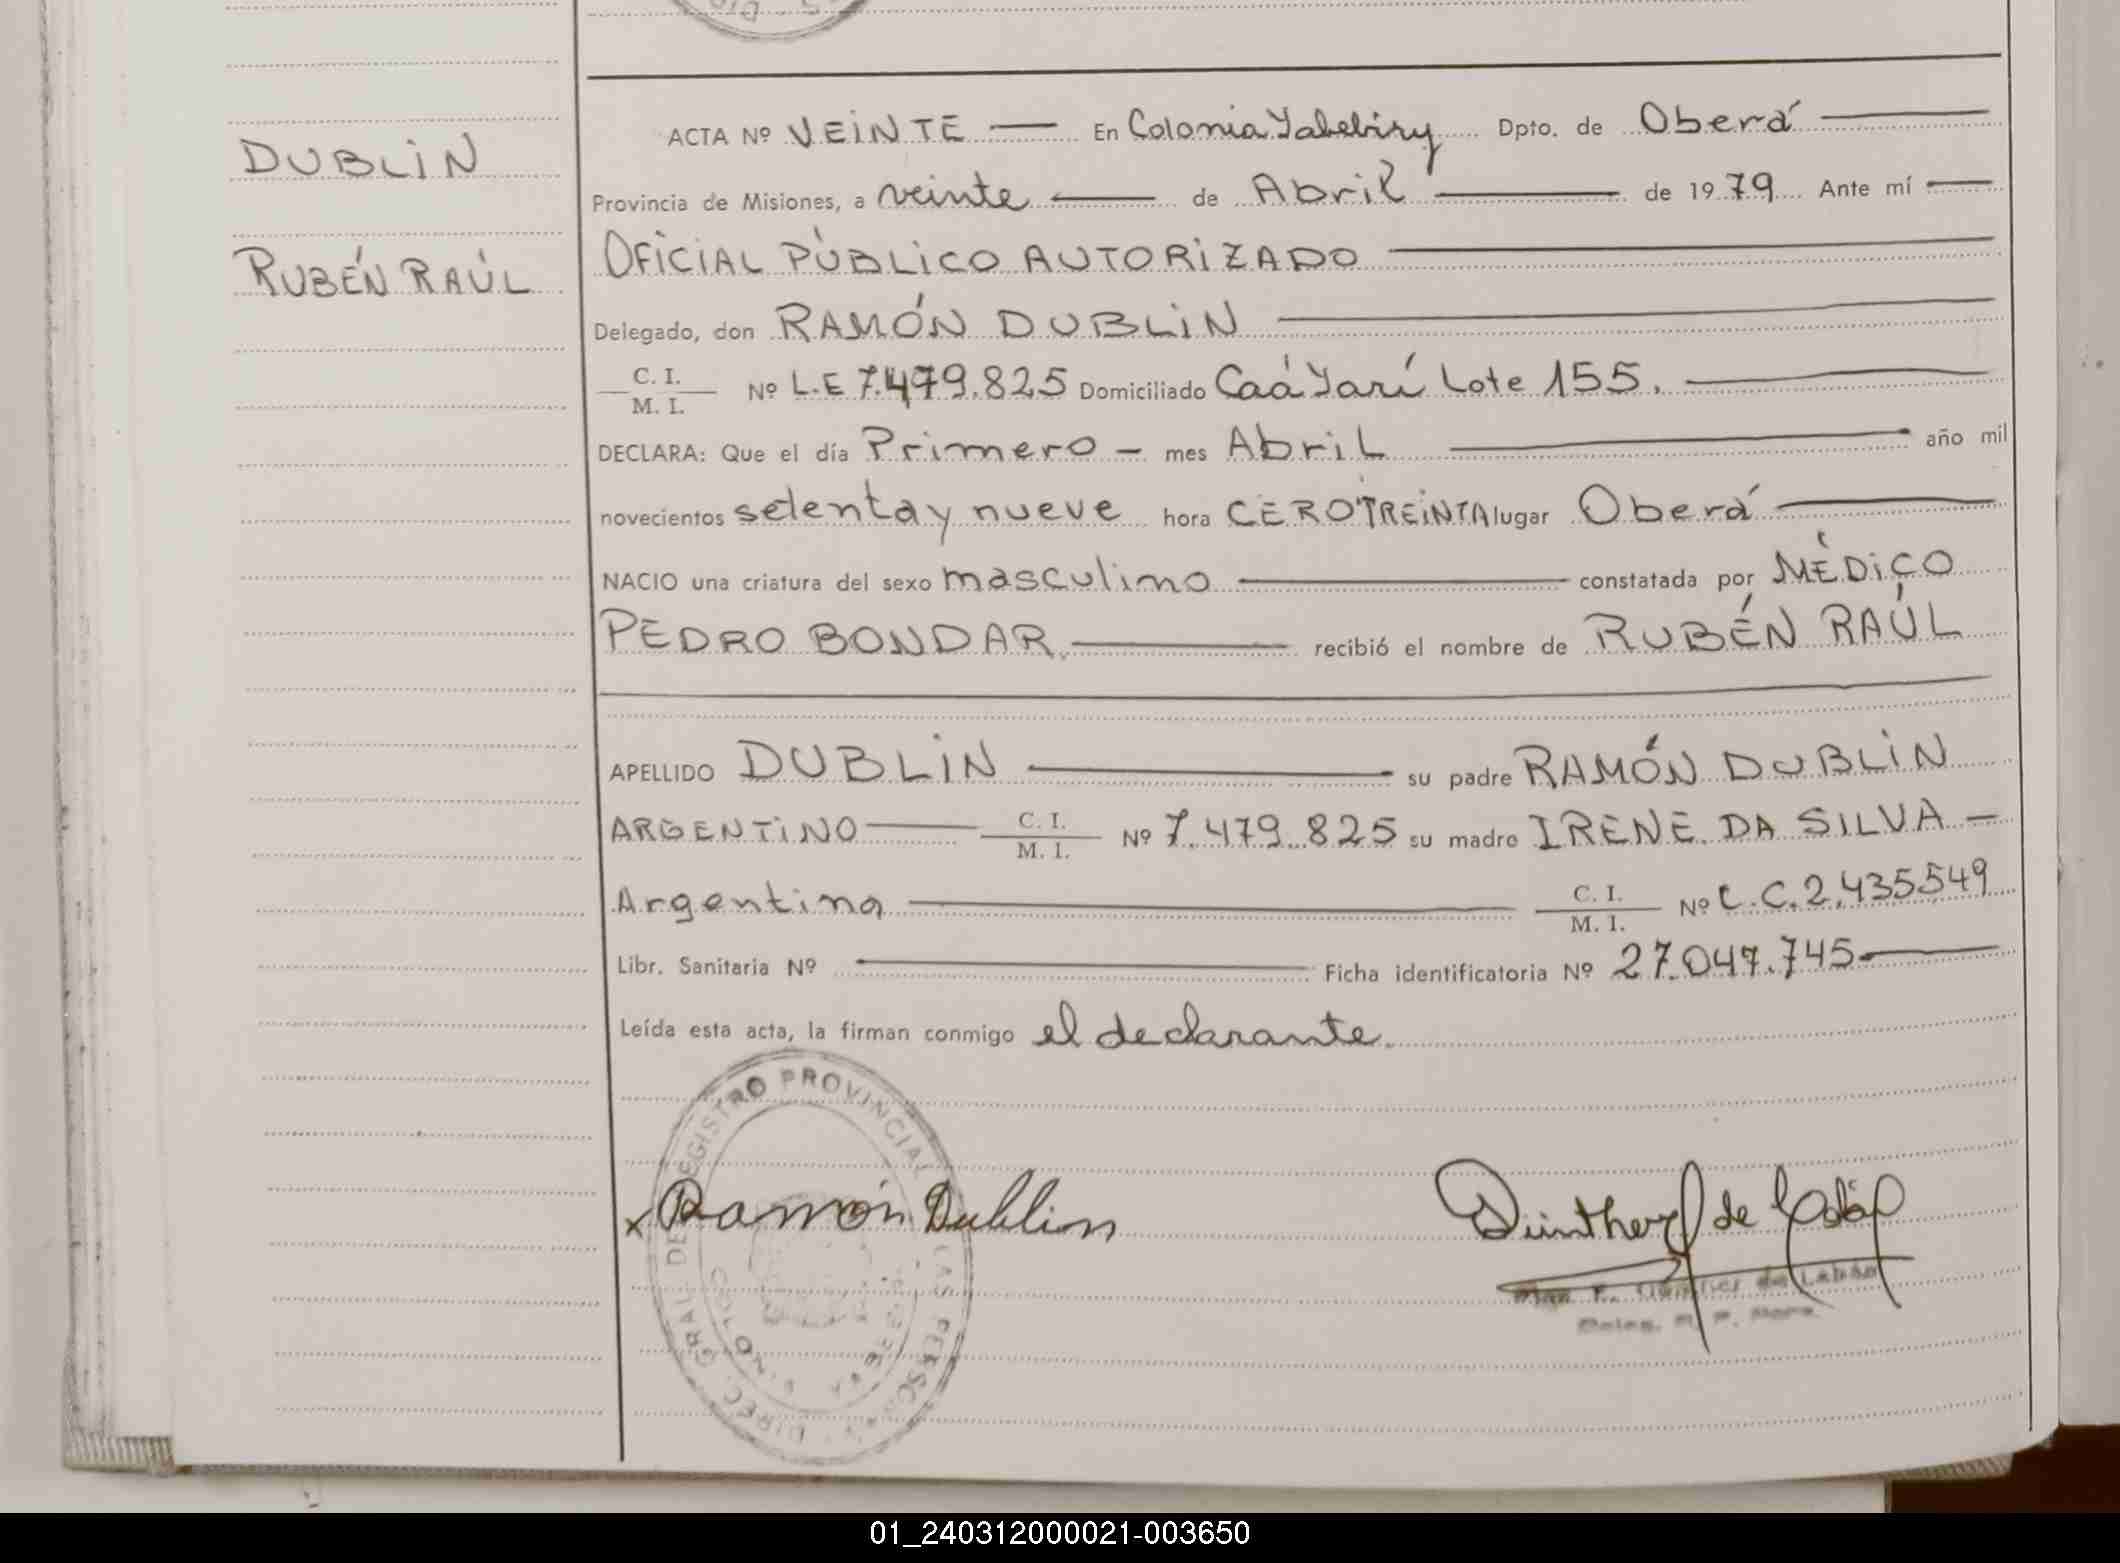 DUBLIN
RUBÉN RAÚL
ACTA Nº VEINTE — En Colonia Yabebiry Dpto. de Oberá
Provincia de Misiones, a veinte — de Abril — de 1979 Ante mí —
OFICIAL PÚBLICO AUTORIZADO
Delegado, don RAMÓN DUBLIN
C. I.
M. I. Nº L.E 7.479.825 Domiciliado Caá Yarí Lote 155.
DECLARA: Que el día Primero – mes Abril — año mil
novecientos setenta y nueve hora CERO TREINTA lugar Oberá
NACIO una criatura del sexo masculino — constatada por MÉDICO
PEDRO BONDAR. — recibió el nombre de RUBÉN RAÚL
APELLIDO DUBLIN — su padre RAMÓN DUBLIN
ARGENTINO — C. I. M. I. Nº 7.479.825 su madre IRENE DA SILVA –
Argentina — C. I. M. I. Nº L.C.2.435549
Libr. Sanitaria Nº — Ficha identificatoria Nº 27.047.745
Leída esta acta, la firman conmigo el declarante.
DIREC. GRAL DE REGISTRO PROVINCIAL DE LAS PERSONAS
x Ramón Dublin
01_240312000021-003650